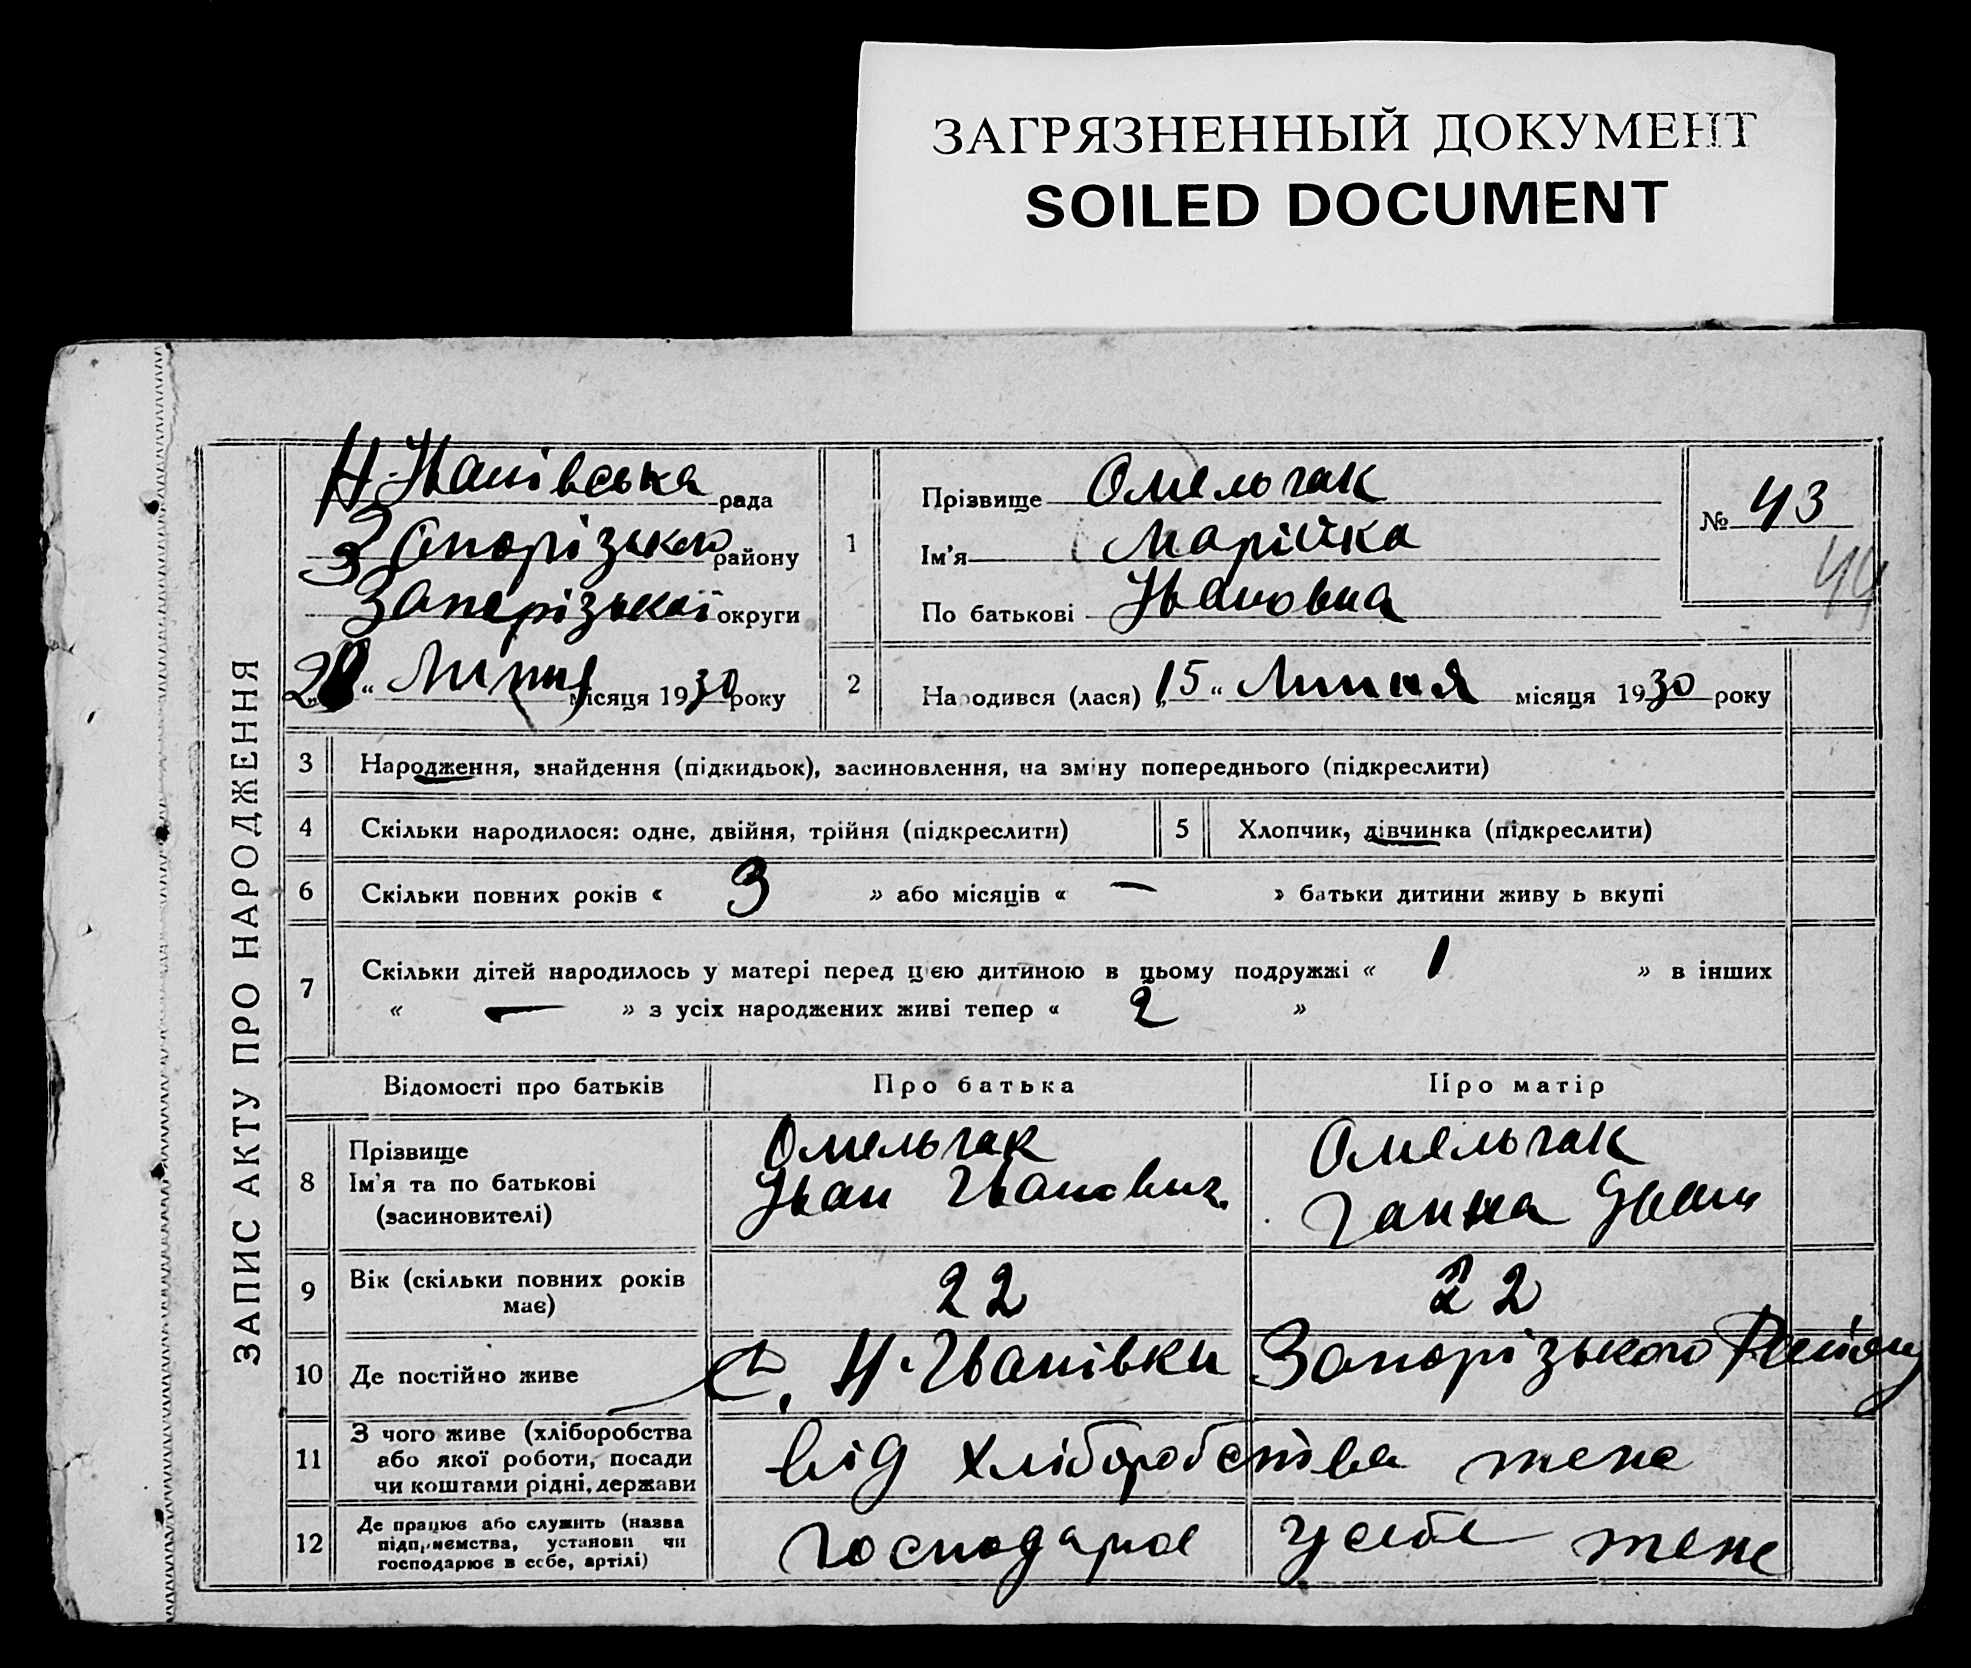 ЗАГРЯЗНЕННЫЙ ДОКУМЕНТ
SOILED DOCUMENT
ЗАПИС АКТУ ПРО НАРОДЖЕННЯ
Н-Іванівська рада
Запорізького району
Запорізької округи
„2 “ Липня місяця 1930 року
1
Прізвище Омельчак
Ім'я Марійка
По батькові Івановна
№ 43
44
2
Народився (лася) „15“ Липня місяця 1930 року
3 Народження, знайдення (підкидьок), засиновлення, на зміну попереднього (підкреслити)
4 Скільки народилося: одне, двійня, трійня (підкреслити) 5 Хлопчик, дівчинка (підкреслити)
6 Скільки повних років « 3 » або місяців « — » батьки дитини живу ь вкупі
7 Скільки дітей народилось у матері перед цією дитиною в цьому подружжі « 1 » в інших
« — » з усіх народжених живі тепер « 2 »
Відомості про батьків Про батька Про матір
8 Прізвище Ім'я та по батькові (засиновителі)
Омельчак Іван Іванович.
Омельчак Ганна Іван
9 Вік (скільки повних років має) 22 22
10 Де постійно живе с. Н-Іванівки Запорізького Району
11 З чого живе (хліборобства або якої роботи, посади чи коштами рідні, держави
від хліборобства теже
12 Де працює або служить (назва підприємства, установи чи господарює в себе, артілі)
господарює у себе теже